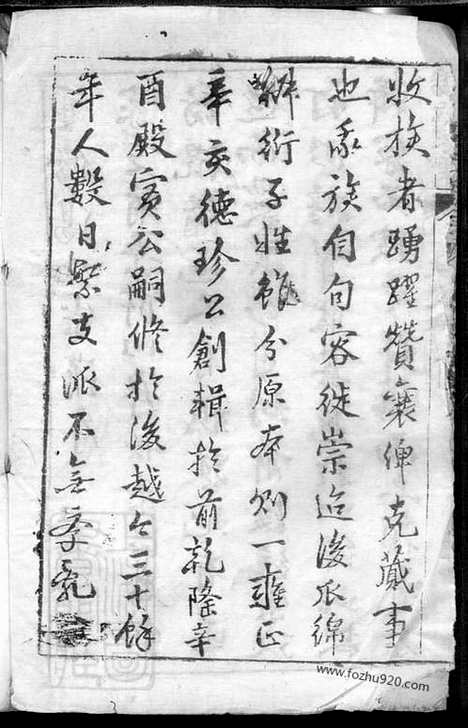 收族者踴躍贊襄俾克蕆事
也我族自句容徙崇迨後瓜綿
緜衍子姓雖分原本則一雍正
辛亥德珍公創輯於前乾隆辛
酉殿賓公嗣修於後越今三十餘
年人數日繁支派不無紊亂
www.fozhu920.com